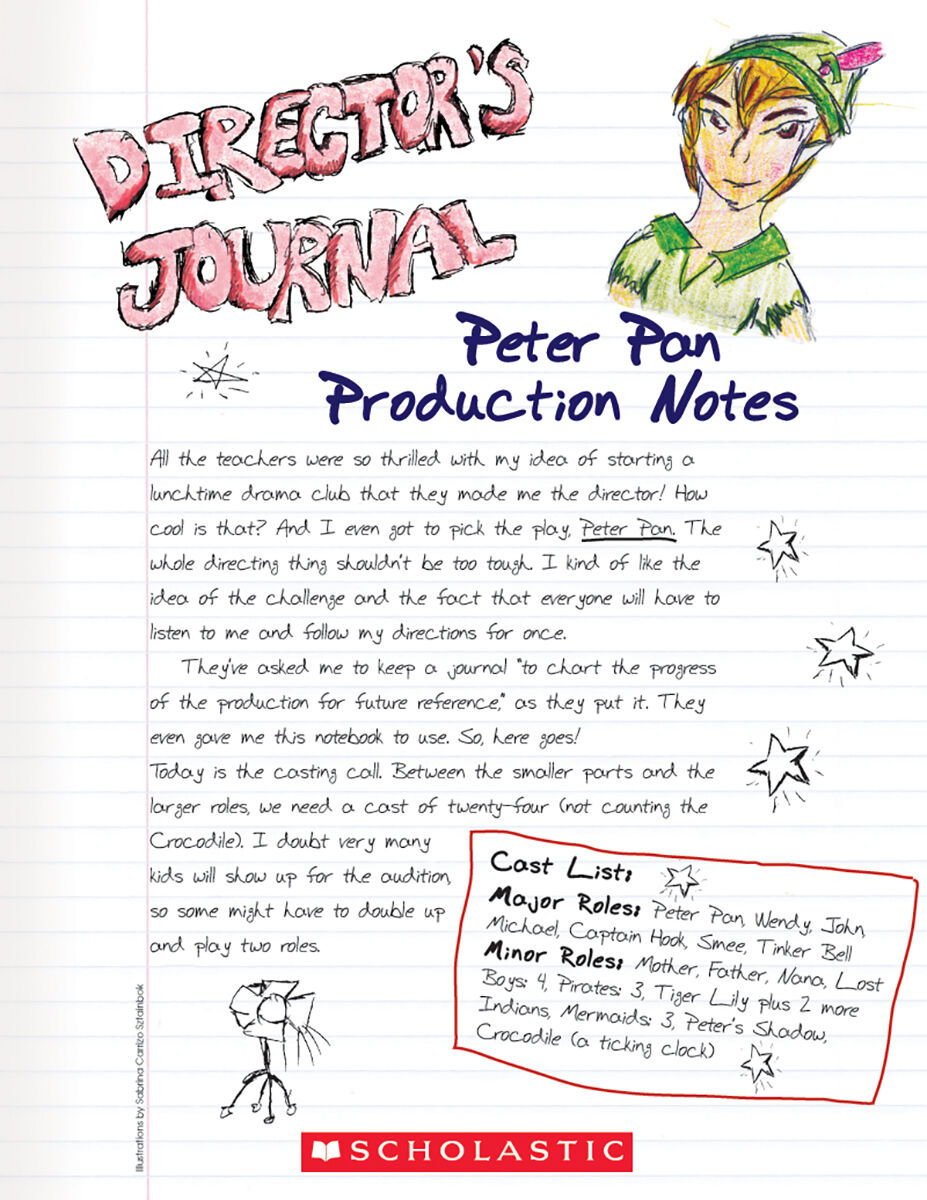 DIRECTOR'S
JOURNAL
Peter Pan
Production Notes
All the teachers were so thrilled with my idea of starting a
lunchtime drama club that they made me the director! How
cool is that? And I even got to pick the play, Peter Pan. The
whole directing thing shouldn't be too tough. I kind of like the
idea of the challenge and the fact that everyone will have to
listen to me and follow my directions for once.
They've asked me to keep a journal "to chart the progress
of the production for future reference," as they put it. They
even gave me this notebook to use. So, here goes!
Today is the casting call. Between the smaller parts and the
larger roles, we need a cast of twenty-four (not counting the
Crocodile). I doubt very many
kids will show up for the audition,
so some might have to double up
and play two roles.
Cast List:
Major Roles: Peter Pan, Wendy, John,
Michael, Captain Hook, Smee, Tinker Bell
Minor Roles: Mother, Father, Nana, Lost
Boys: 4, Pirates: 3, Tiger Lily plus 2 more
Indians, Mermaids: 3, Peter's Shadow,
Crocodile (a ticking clock)
Illustrations by Sabrina Carrizo Sztainbok
SCHOLASTIC